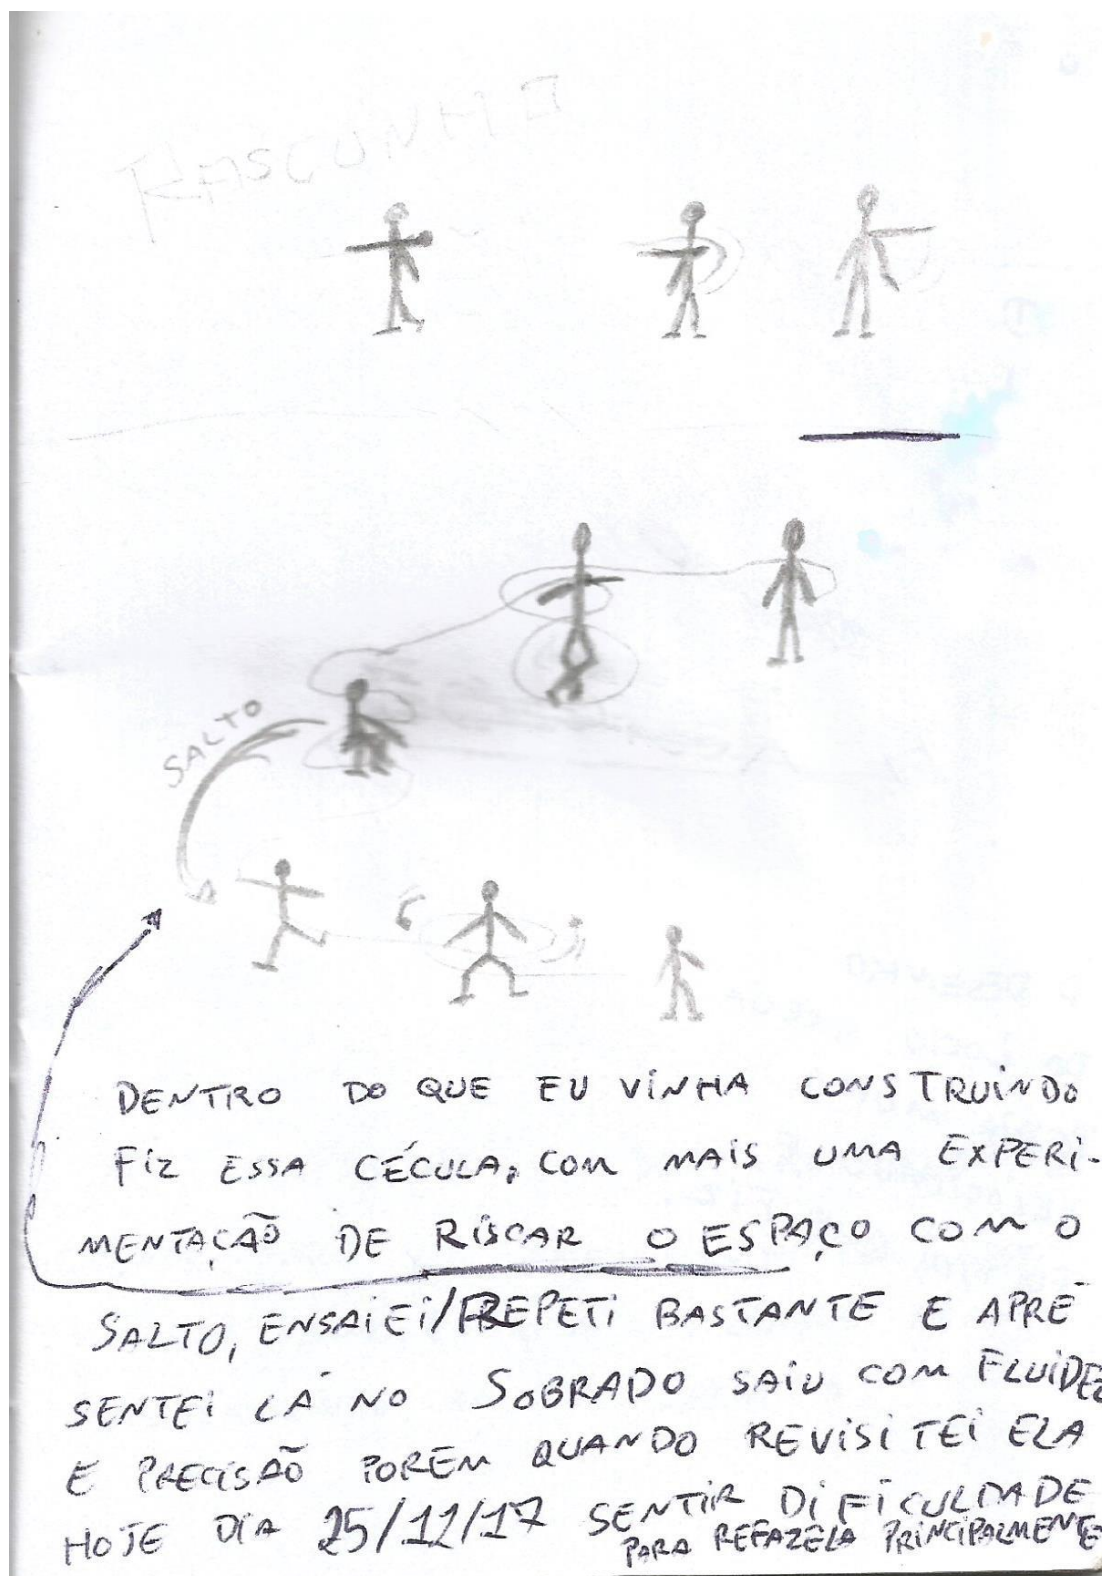 RASCUNHO
SALTO
DENTRO DO QUE EU VINHA CONSTRUINDO
FIZ ESSA CÉCULA, COM MAIS UMA EXPERI-
MENTAÇÃO DE RISCAR O ESPAÇO COM O
SALTO, ENSAIEI/REPETI BASTANTE E APRE
SENTEI LÁ NO SOBRADO SAIU COM FLUIDEZ
E PRECISÃO POREM QUANDO REVISITEI ELA
HOJE DIA 25/12/17 SENTIR DIFICULDADE
PARA REFAZELA PRINCIPALMENTE